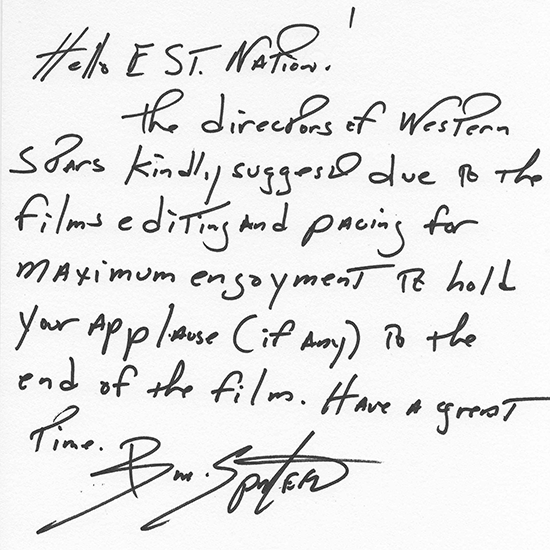 Hello E ST. Nation!
The directors of Western
Stars kindly suggest due to the
films editing and pacing for
maximum engoyment to hold
your applause (if any) to the
end of the film. Have a great
time.